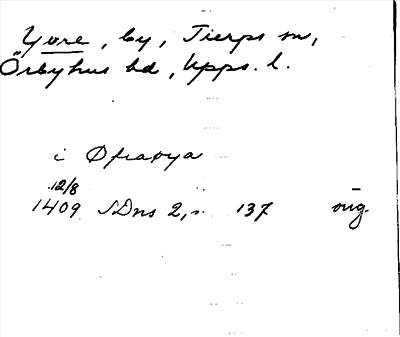 Yvre, by, Tierps sn,
Örbyhus hd, Upps. l.
i Øfraøya
12/8
1409 SDns 2, s. 137 orig.